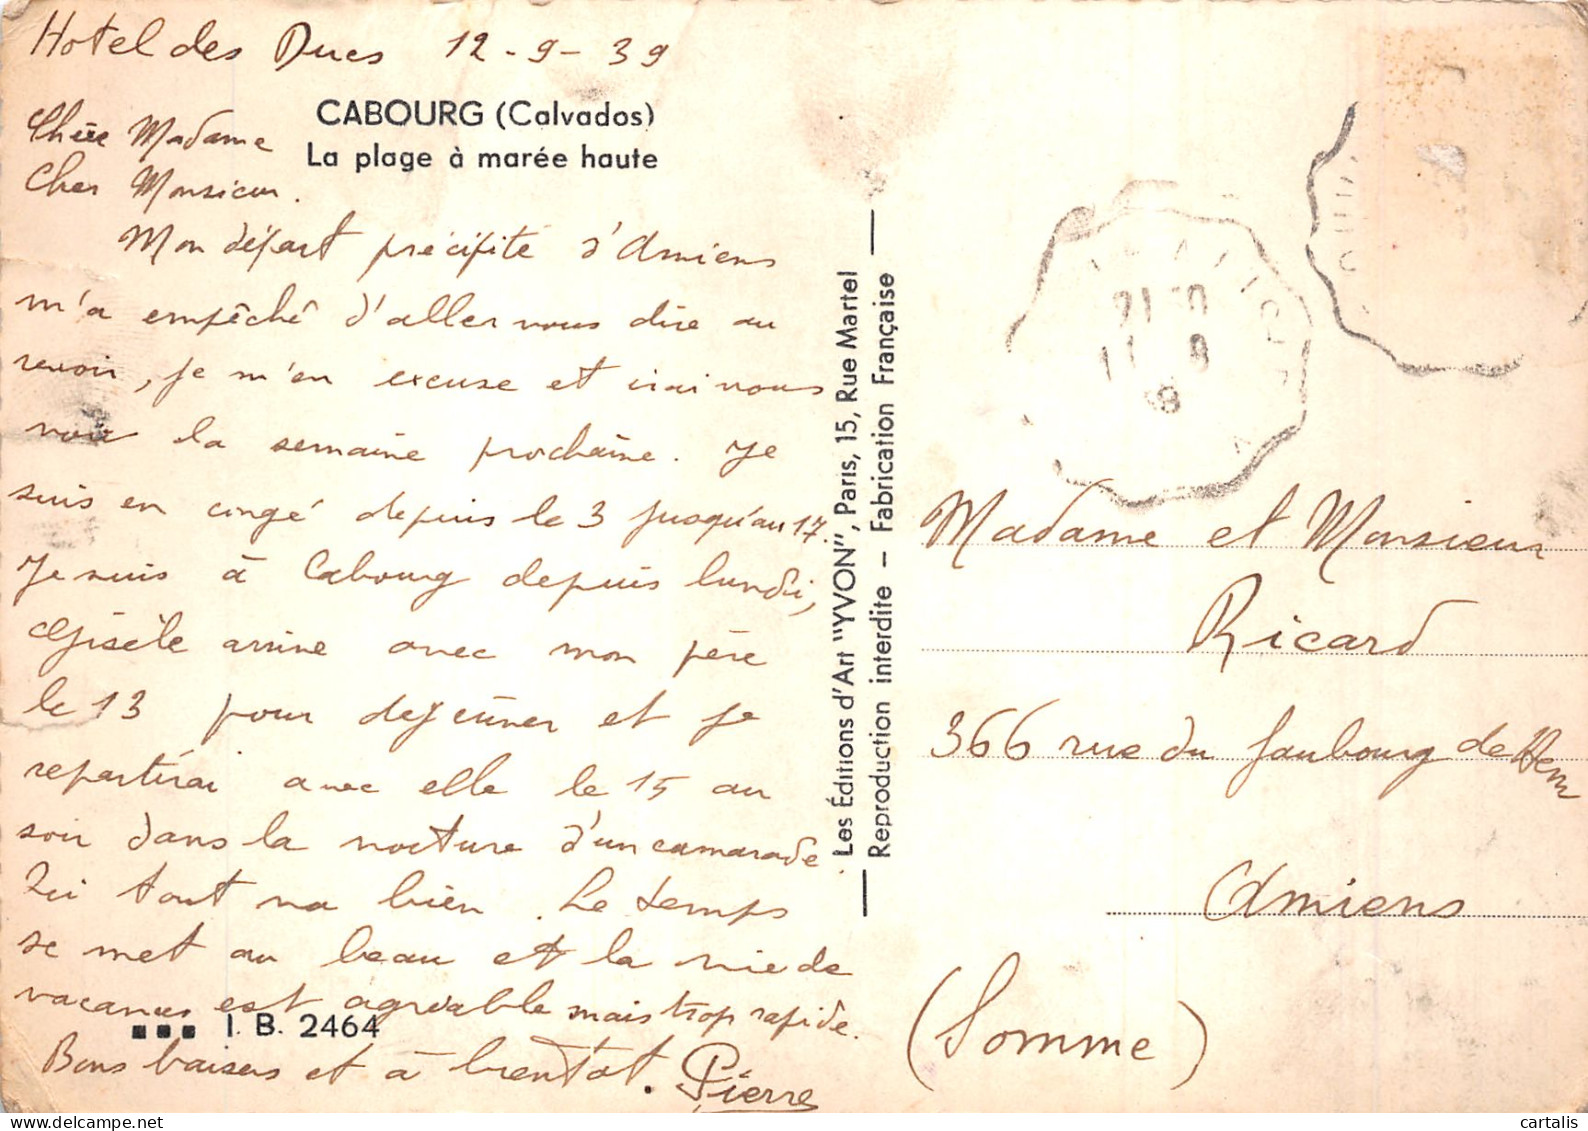 Hotel des Ducs 12-9-39
CABOURG (Calvados)
La plage à marée haute
Chère Madame
Cher Monsieur.
Mon départ précipité d'Amiens
m'a empêché d'aller vous dire au
revoir, je m'en excuse et irai vous
voir la semaine prochaine. Je
suis en congé depuis le 3 jusqu'au 17.
Je suis à Cabourg depuis lundi,
Gisèle arrive avec mon père
le 13 pour dejeûner et je
repartirai avec elle le 15 au
soir dans la voiture d'un camarade.
Ici tout va bien. Le temps
se met au beau et la vie de
vacances est agréable mais trop rapide.
I. B. 2464
Bons baisers et à bientôt. Pierre
Les Éditions d'Art "YVON", Paris, 15, Rue Martel
Reproduction interdite – Fabrication Française
Madame et Monsieur
Ricard
366 rue du faubourg de Hem
Amiens
(Somme)
cartalis